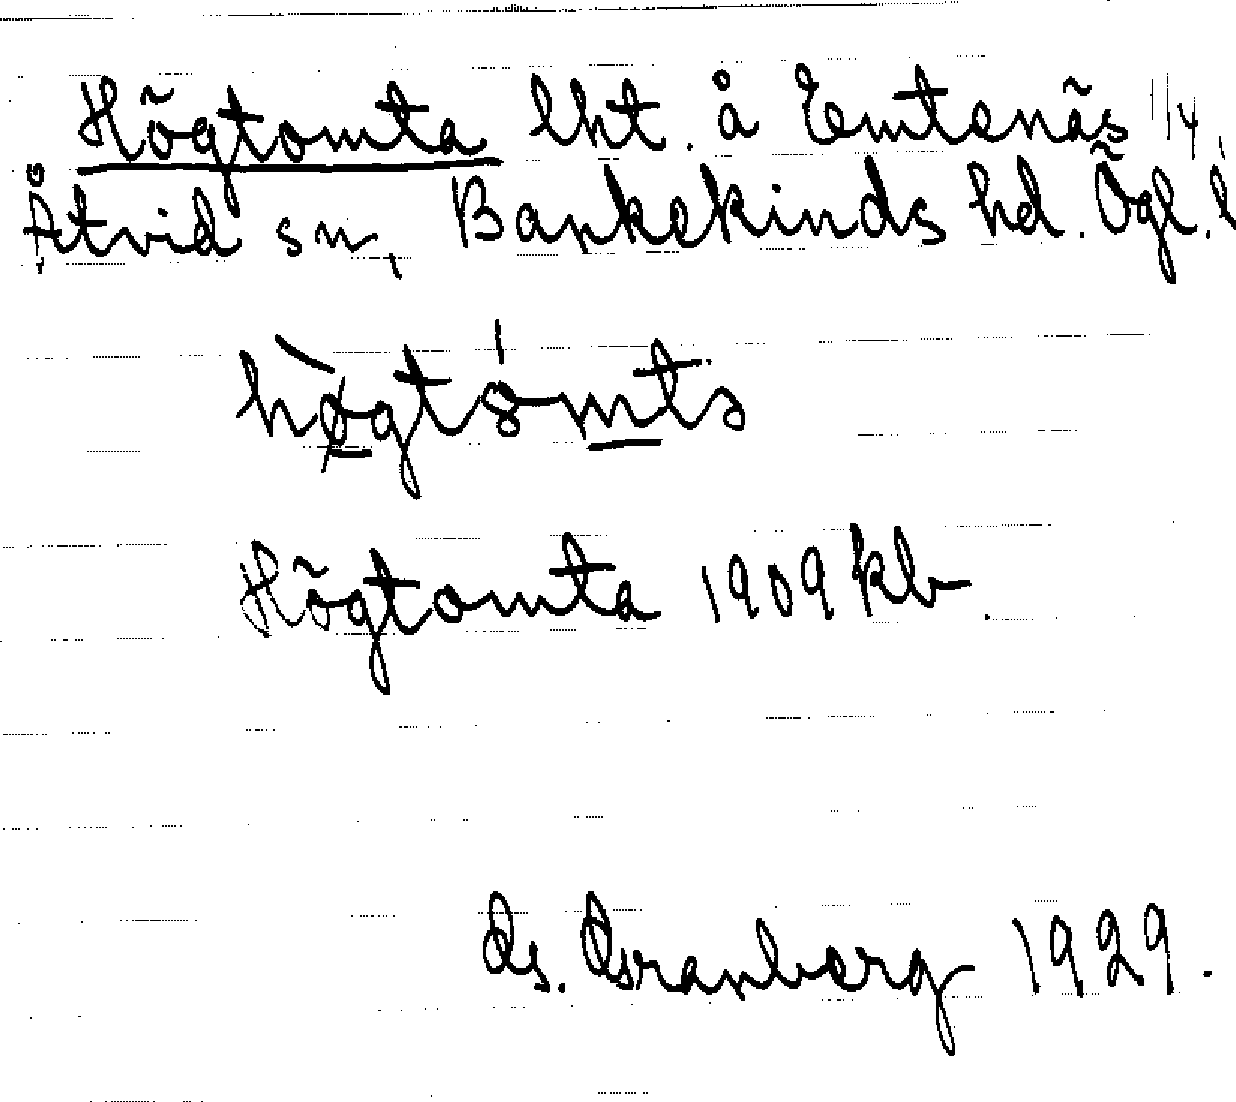 Högtomta lht. å Emtenäs 1/4,
Åtvid sn, Bankekinds hd. Ögl. l
Högtomta 1909 kb.
Gs. Granberg 1929.